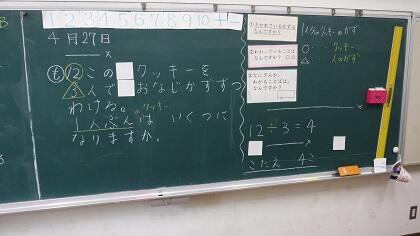 1 2 3 4 5 6 7 8 9 10 + -
4月27日
も 12この クッキーを
3人で おなじかずずつ
わける。
クッキー
1人ぶんは いくつに
なりますか。
①きかれているかずは
なんですか?
②わかっていることは
なんですか? ○△
③なにざんか。
わかることばは。
なんですか?
1人分のクッキーのかず
○ クッキー
△ 人のかず
12÷3=4
こたえ 4こ